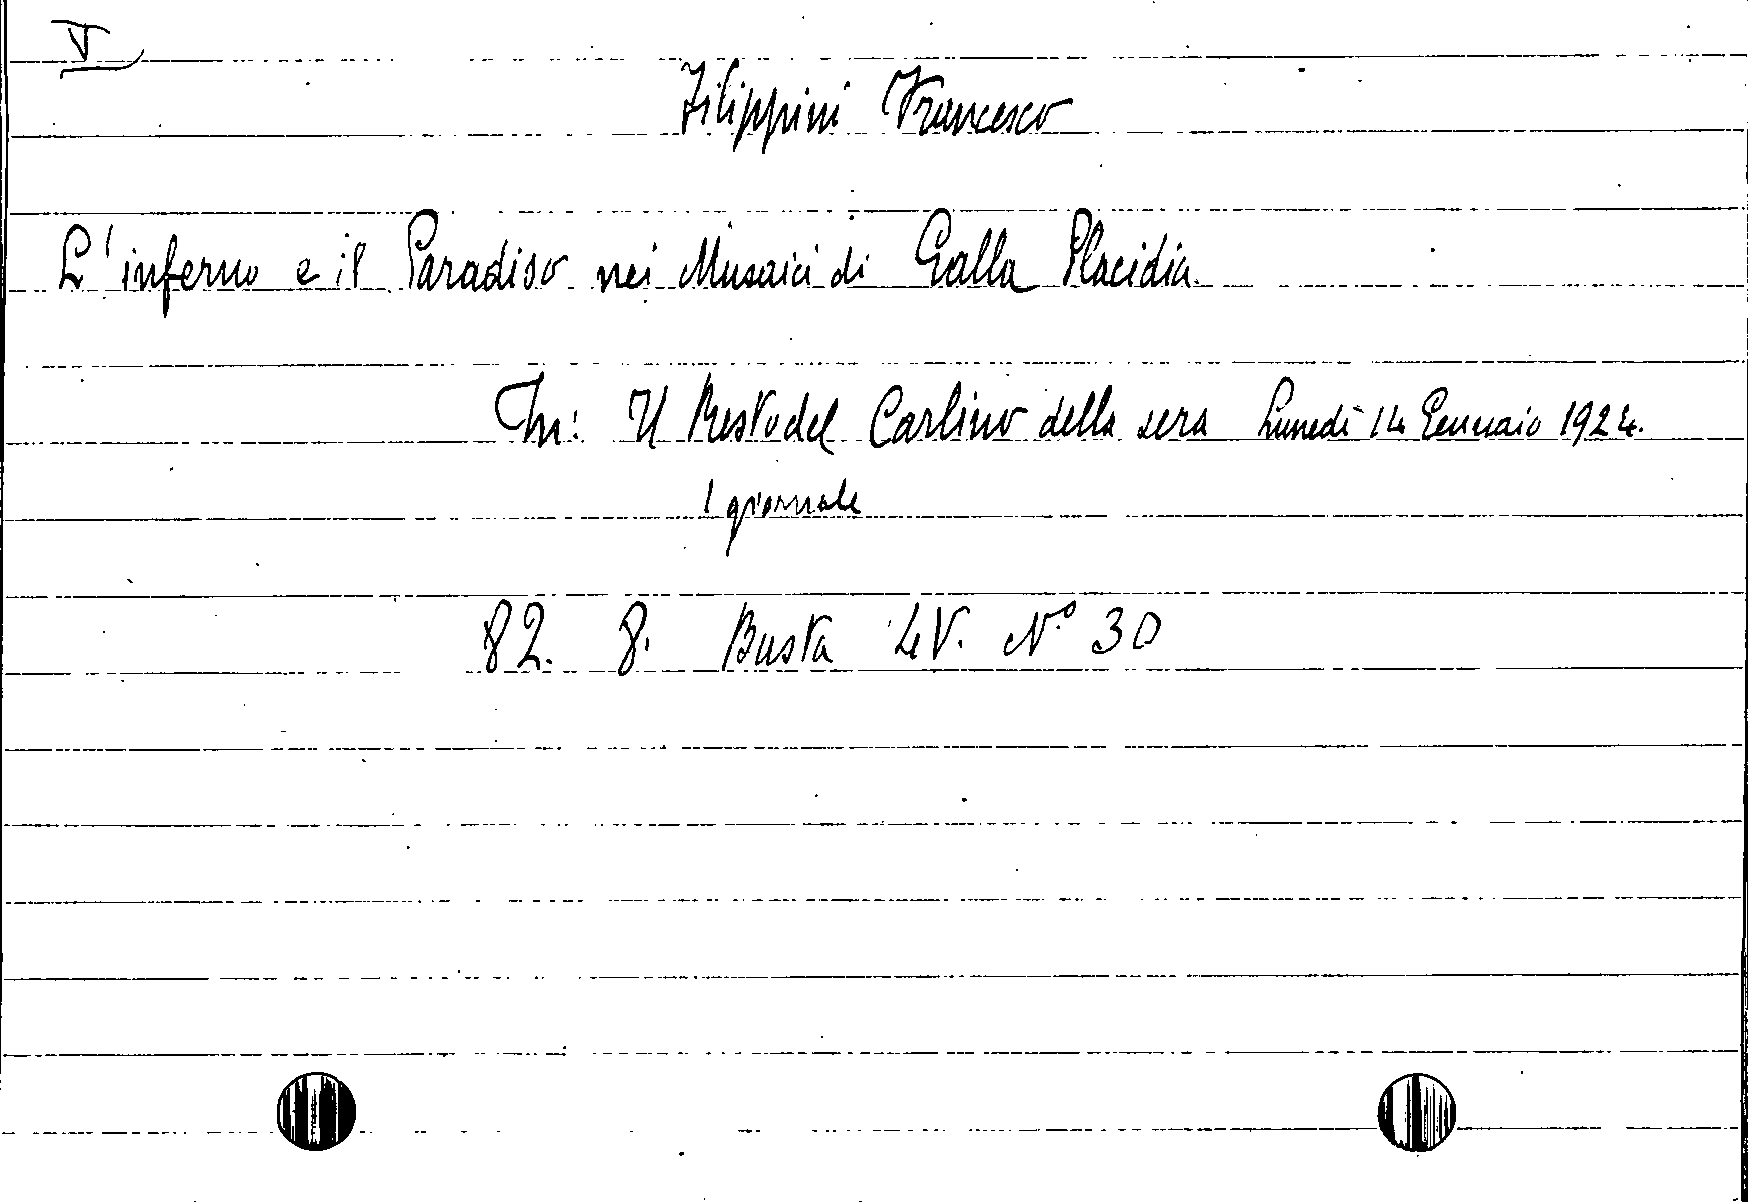 V
Filippini Francesco
L'inferno e il Paradiso nei Musaici di Galla Placidia.
In: Il Resto del Carlino della sera Lunedì 14 Gennaio 1924.
1 giornale
82. 8. Busta LV. N.° 30